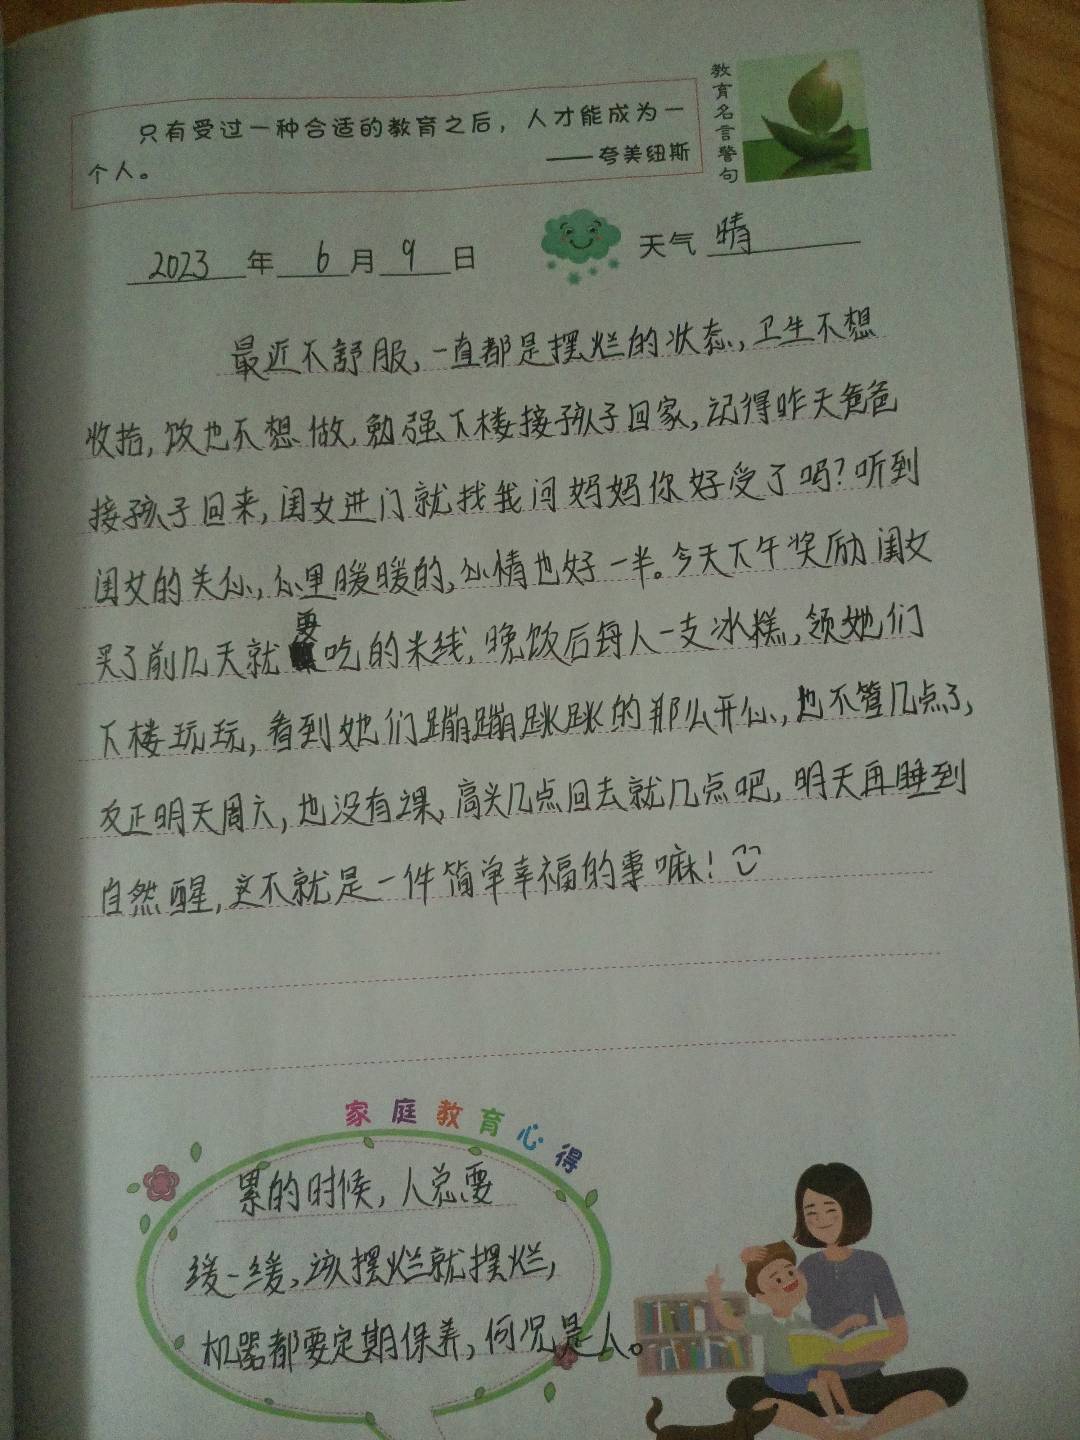 教育名言警句
只有受过一种合适的教育之后，人才能成为一
个人。
——夸美纽斯
2023年6月9日
天气 晴
最近不舒服，一直都是摆烂的状态，卫生不想
收拾，饭也不想做，勉强下楼接孩子回家，记得昨天爸爸
接孩子回来，闺女进门就找我问妈妈你好受了吗？听到
闺女的关心，心里暖暖的，心情也好一半。今天下午奖励闺女
买了前几天就要吃的米线，晚饭后每人一支冰糕，领她们
下楼玩玩，看到她们蹦蹦跳跳的那么开心，也不管几点了，
反正明天周六，也没有课，高兴几点回去就几点吧，明天再睡到
自然醒，这不就是一件简单幸福的事嘛！
家庭教育心得
累的时候，人总要
缓一缓，该摆烂就摆烂，
机器都要定期保养，何况是人。